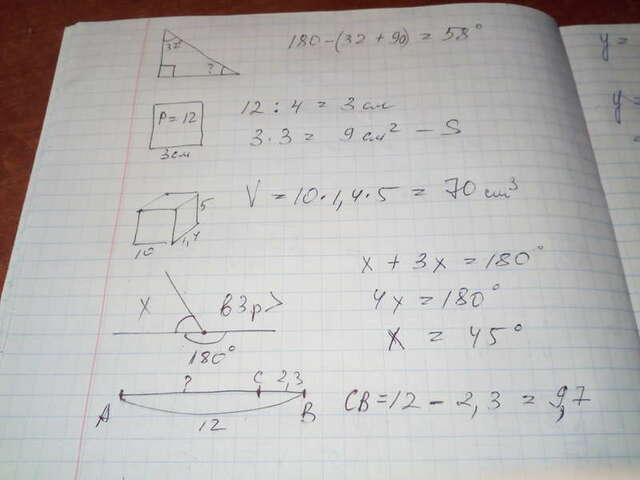 32°
?
180-(32+90)=58°
y=
P=12
3см
12:4=3см
3·3=9см² - S
y=
5
10
1,4
V=10·1,4·5=70см³
X
в 3р>
180°
x+3x=180°
4x=180°
x=45°
?
C
2,3
A
12
B
CB=12-2,3=9,7